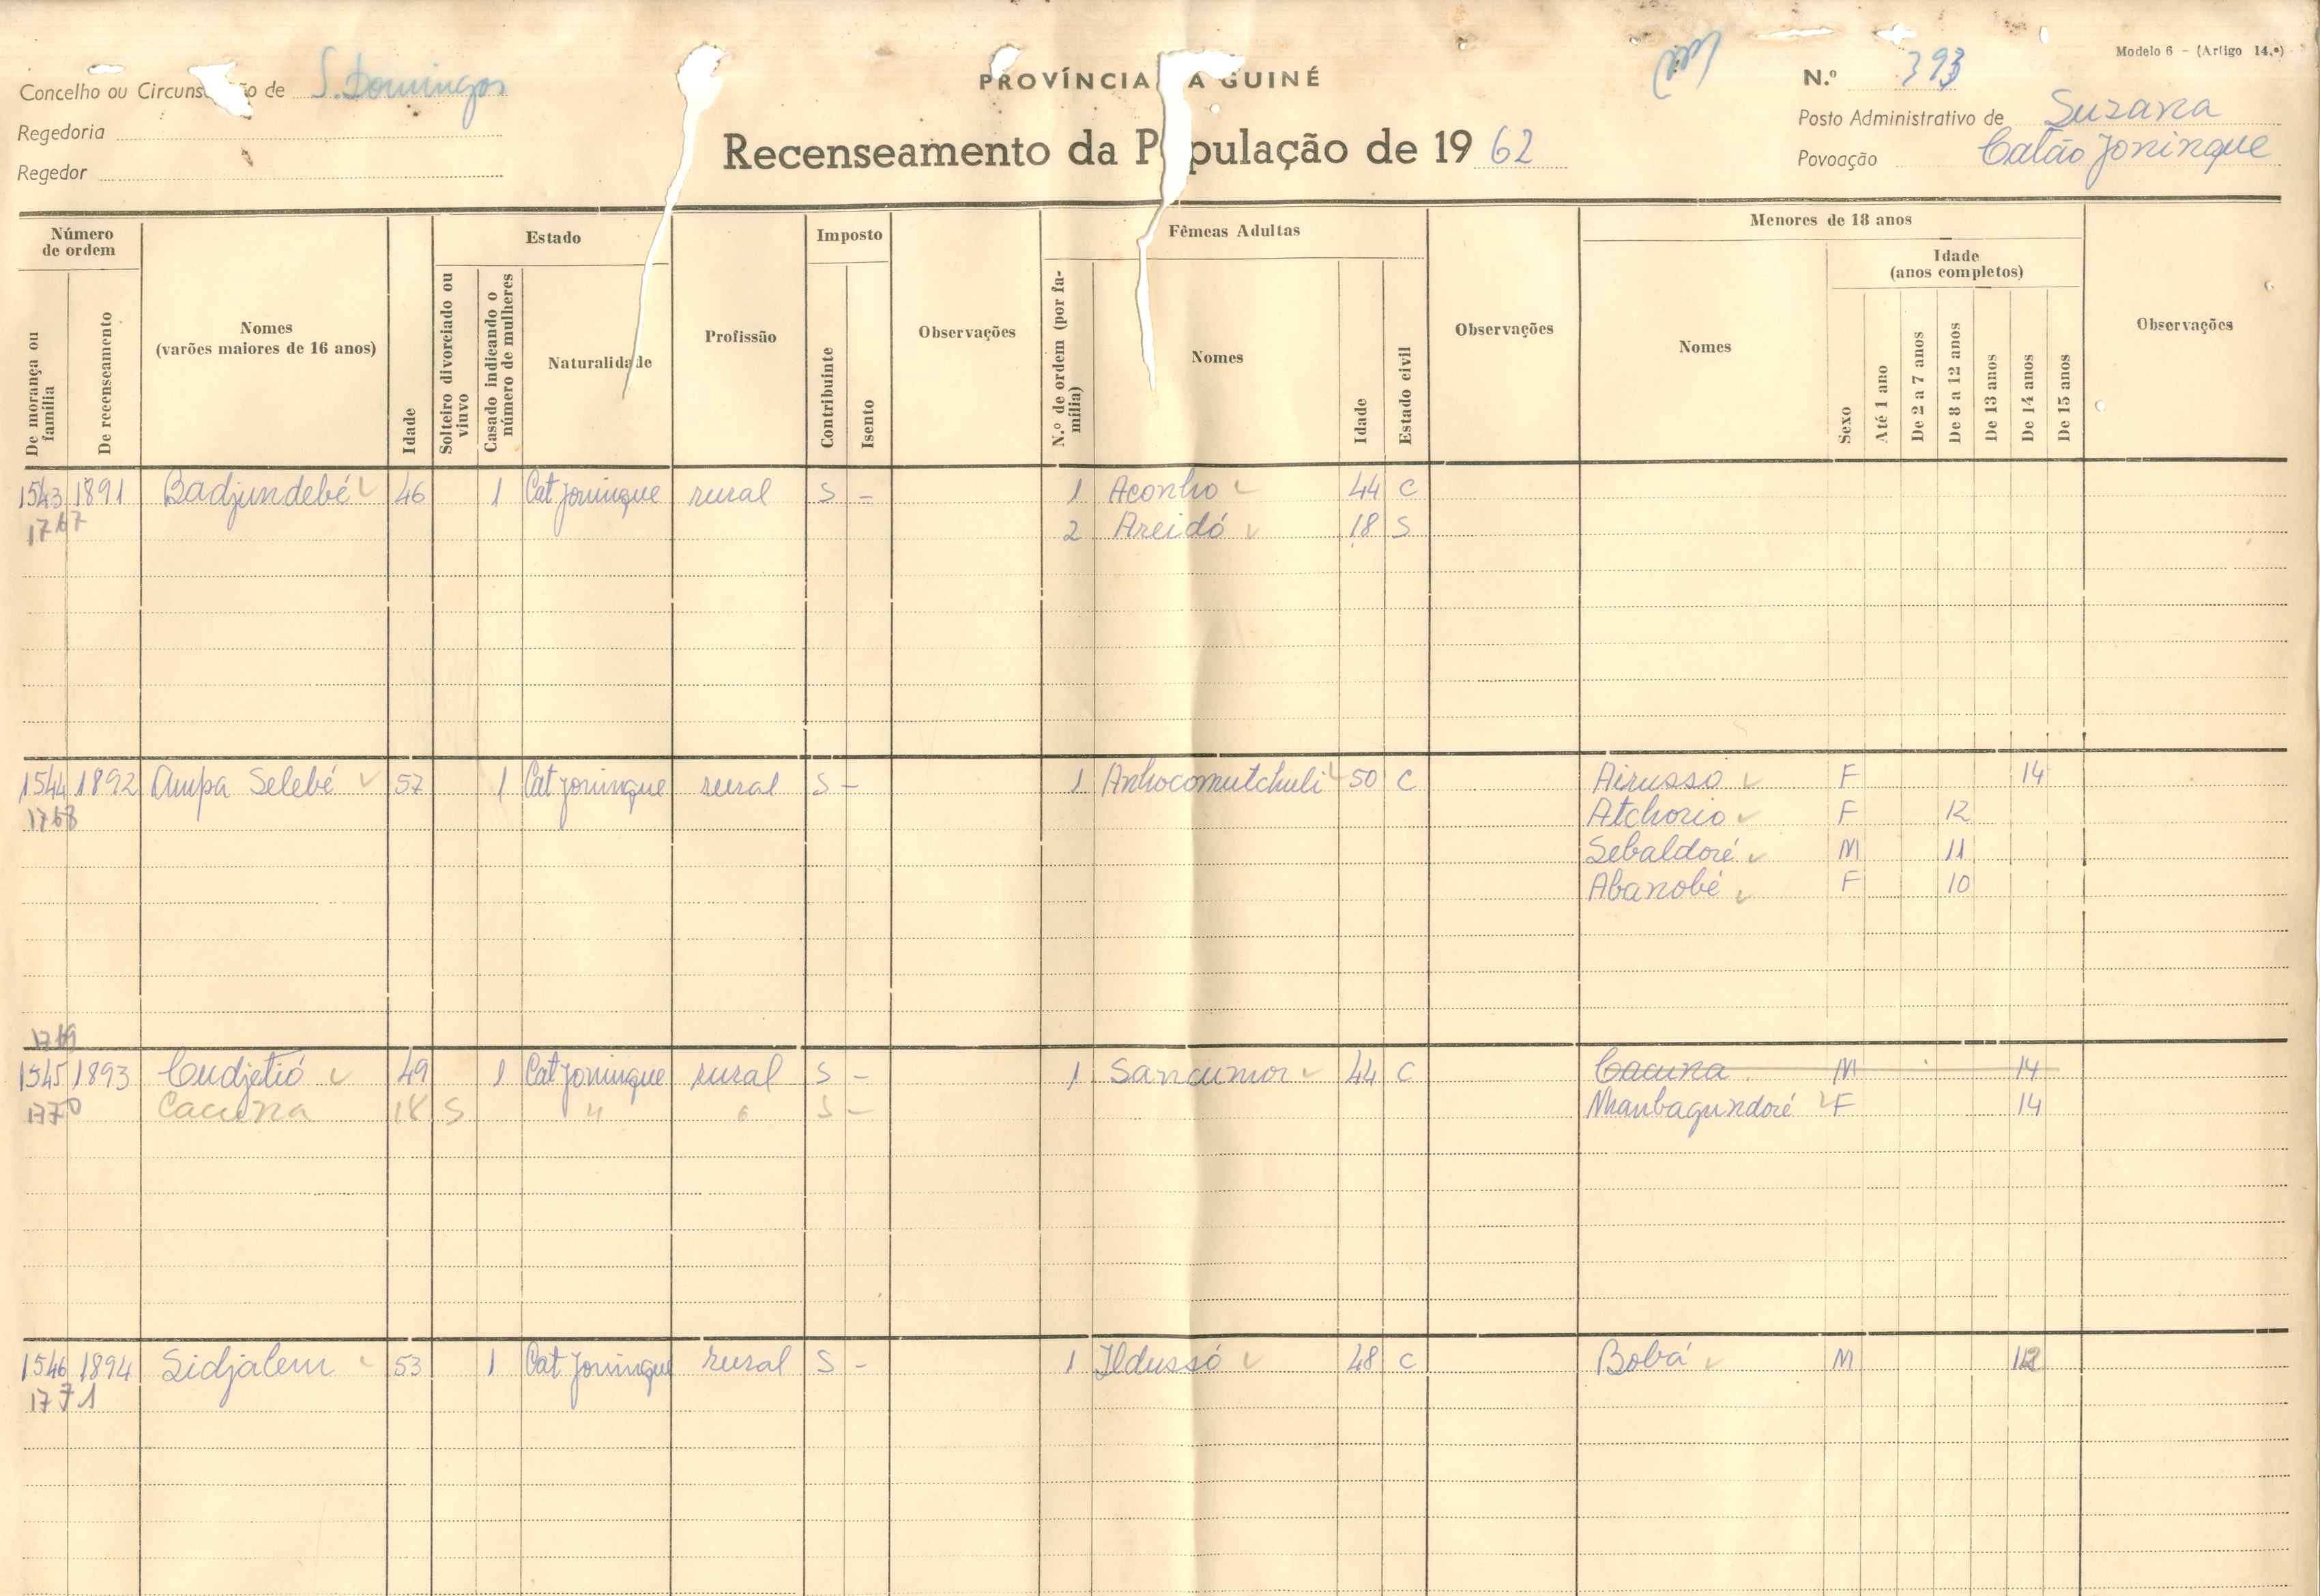 Modelo 6 - (Artigo 14.º)
Concelho ou Circuns ão de S. Domingos
PROVÍNCIA A GUINÉ
N.º 393
Regedoria
Recenseamento da P pulação de 19 62
Posto Administrativo de Suzana
Regedor
Povoação Catão Joninque
Número de ordem
De morança ou família
De recenseamento
Nomes (varões maiores de 16 anos)
Idade
Estado
Solteiro divorciado ou viuvo
Casado indicando o número de mulheres
Naturalidade
Profissão
Imposto
Contribuinte
Isento
Observações
N.º de ordem (por família)
Fêmeas Adultas
Nomes
Idade
Estado civil
Observações
Menores de 18 anos
Nomes
Sexo
Idade (anos completos)
Até 1 ano
De 2 a 7 anos
De 8 a 12 anos
De 13 anos
De 14 anos
De 15 anos
Observações
1543 1891 Badjundebé 46 1 Cat Joninque rural S - 1 Aconho 44 C
1767 2 Areidó 18 S
1544 1892 Ampa Selebé 57 1 Cat Joninque rural S - 1 Anhocomutchuli 50 C Airusso F 14
1768 Atchorio F 12
Sebaldoré M 11
Abanobé F 10
1769
1545 1893 Cudjetió 49 1 Cat Joninque rural S - 1 Sancumor 44 C Cacuna M 14
1770 Cacuna 18 S " " S - Nhanbagundoré F 14
1546 1894 Sidjalem 53 1 Cat Joninque rural S - 1 Ildussó 48 C Bobá M
1771